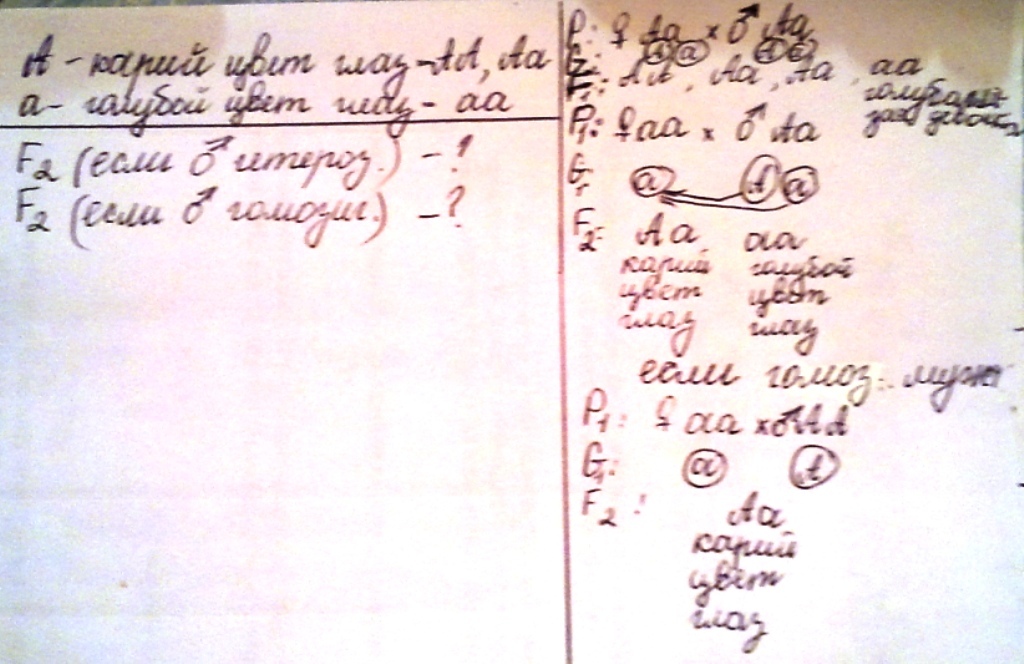 А - карий цвет глаз - АА, Аа
а - голубой цвет глаз - аа
F2 (если ♂ гетероз.) - ?
F2 (если ♂ гомозиг.) - ?
P: ♀ Аа × ♂ Аа
G: А а А а
F1: АА, Аа, Аа, аа
голубоглазая девочка
P1: ♀ аа × ♂ Аа
G1 а А а
F2: Аа, аа
карий голубой
цвет цвет
глаз глаз
если гомоз. муж
P1: ♀ аа × ♂ АА
G1: а А
F2: Аа
карий
цвет
глаз